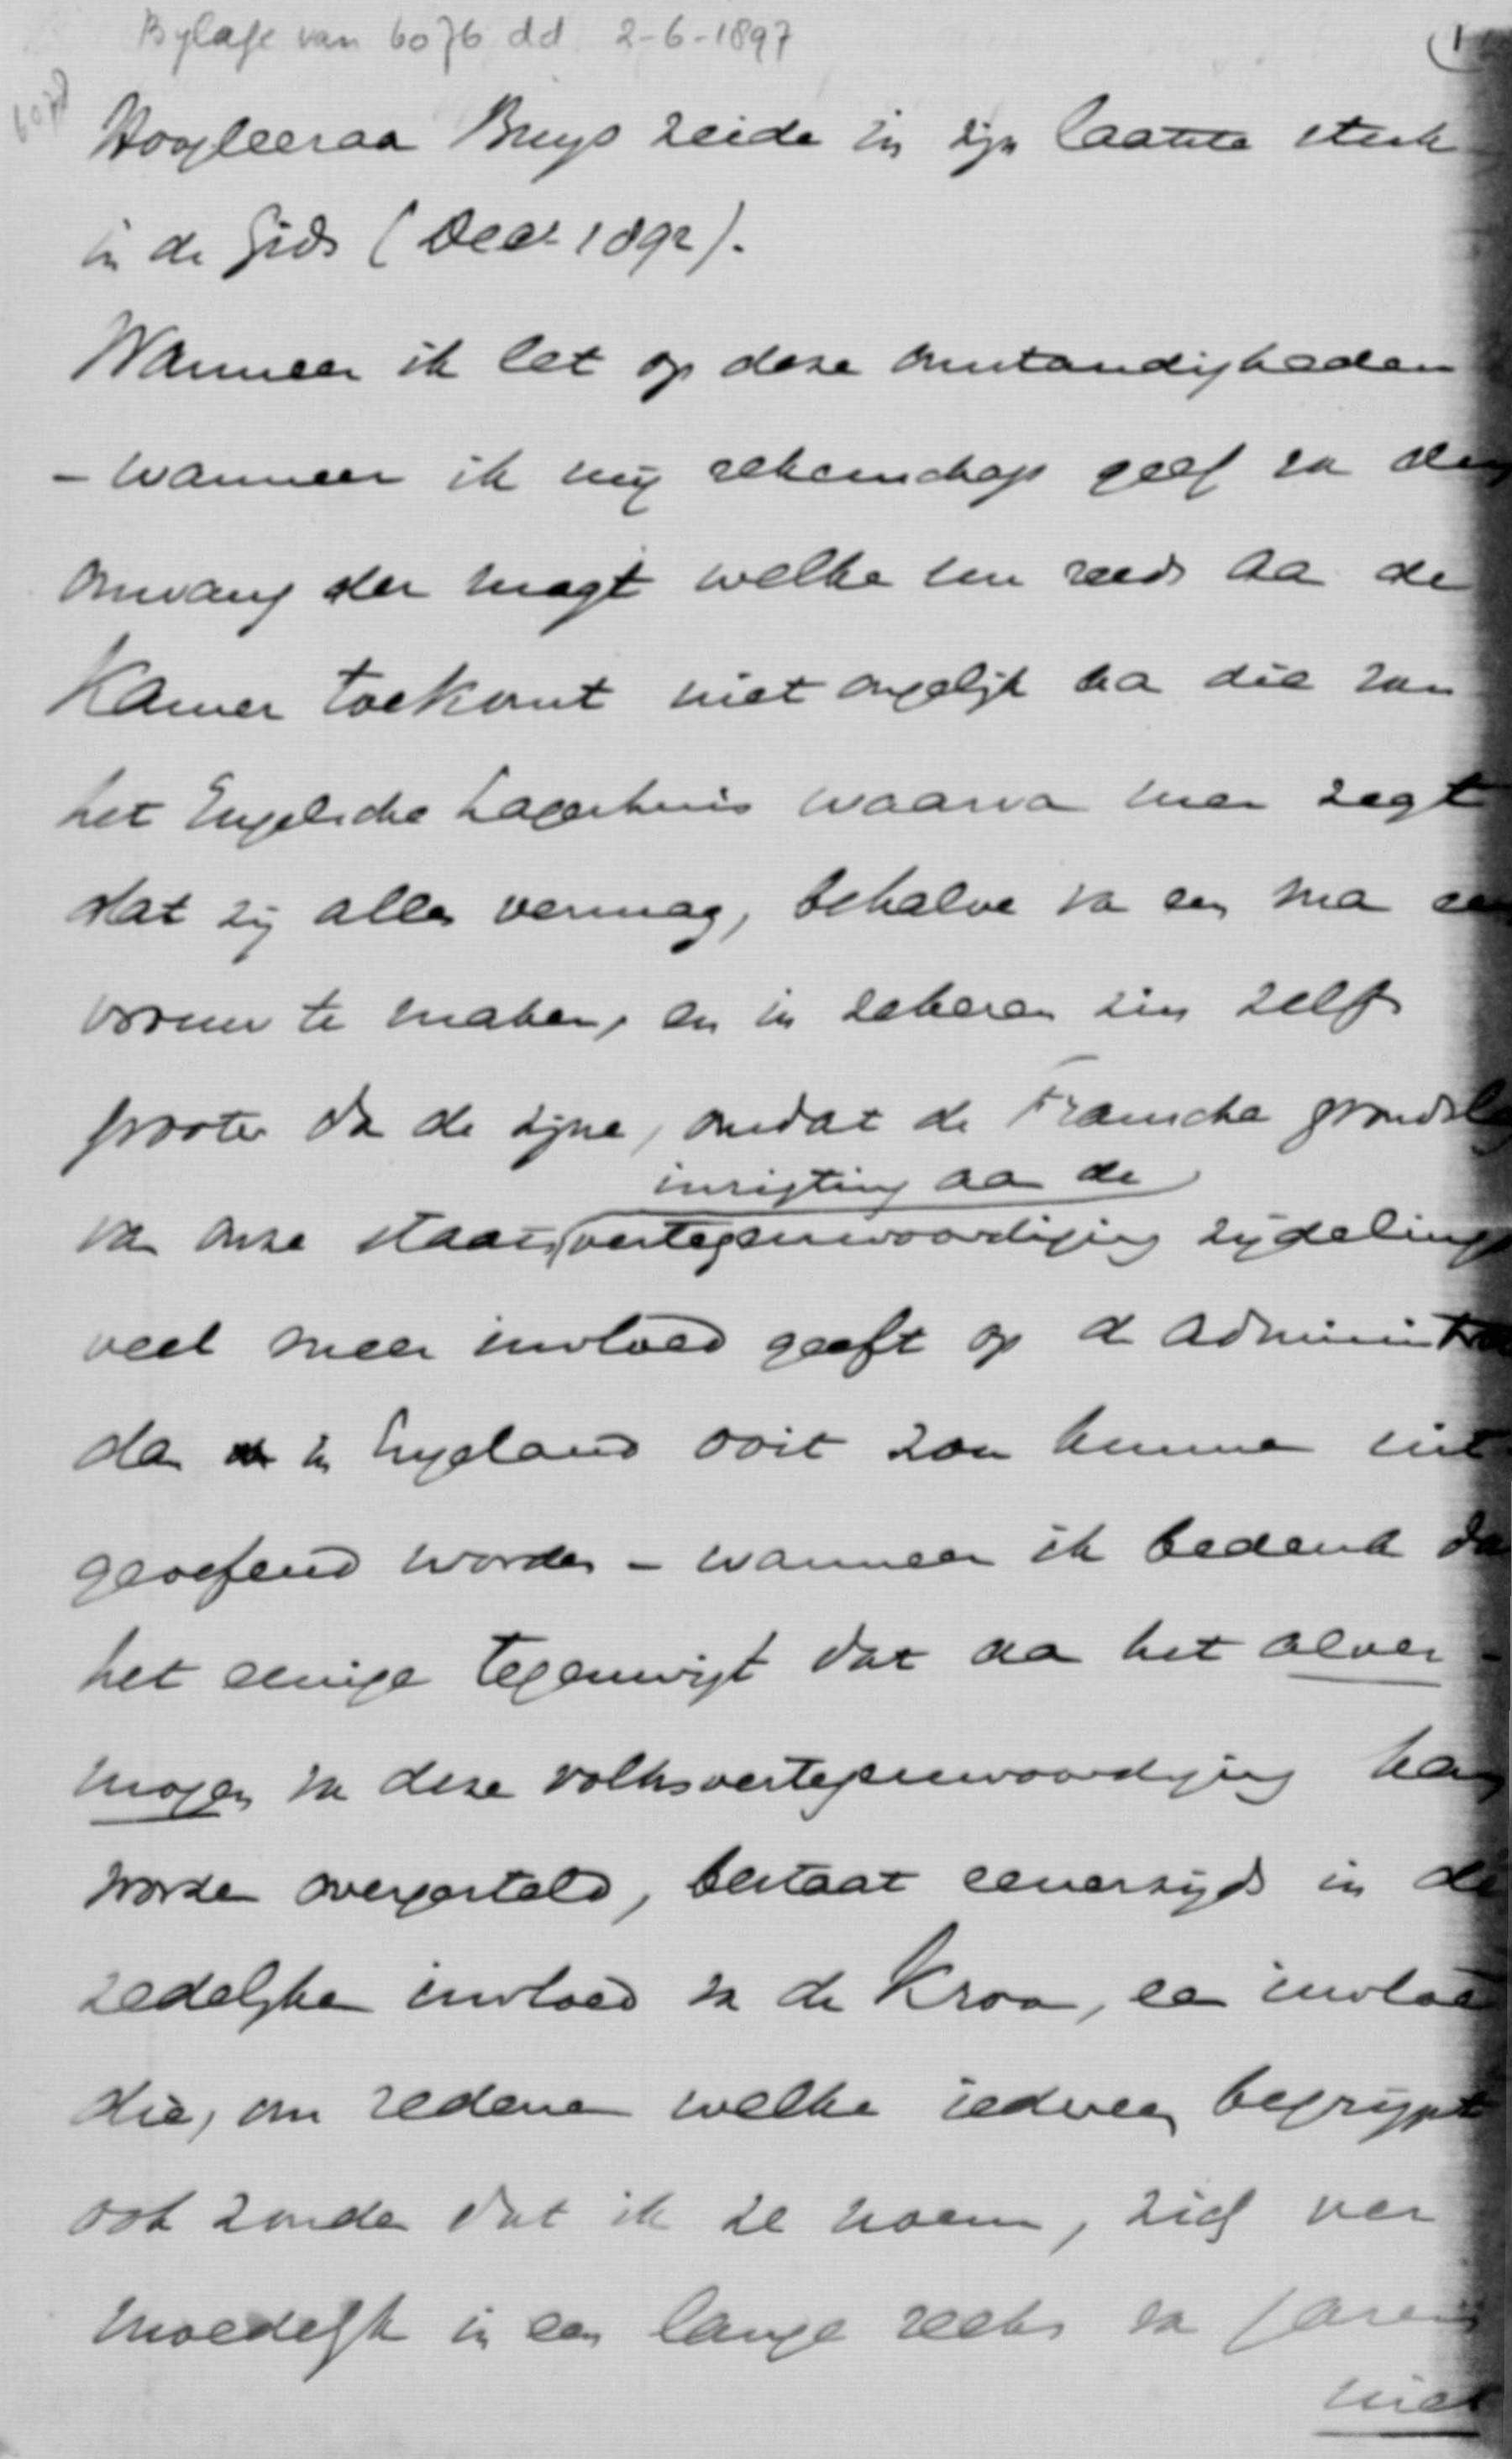 Bylage van 6076 dd. 2-6-1897
(1
6076
Hoogleeraa Buys zeide in zijn laatste stuk
in de Gids (Decr 1892).
Wanneer ik let op deze omstandigheden
- wanneer ik mij rekenschap geef va den
omvang der magt welke nu reeds aa de
Kamer toekomt niet ongelijk aa die van
het Engelsche Lagerhuis waarva men zegt
dat zij alles vermag, behalve va een ma een
vrouw te maken, en in zekeren zin zelfs
grooter da de zijne, omdat de Fransche grondsl
inrigting aa de
va onze staats vertegenwoordiging zijdelings
veel meer invloed geeft op d administra
da in Engeland ooit zou kunne uit
geoefend worden - wanneer ik bedenk da
het eenige tegenwigt dat aa het alver-
mogen va deze volksvertegenwoordiging kan
worde overgesteld, bestaat eenerzijds in de
zedelijke invloed va de Kroon, ee invloed
die, om redene welke iedereen begrijpt
ook zonder dat ik ze noem, zich ver
moedelijk in een lange reeks va jaren
niet